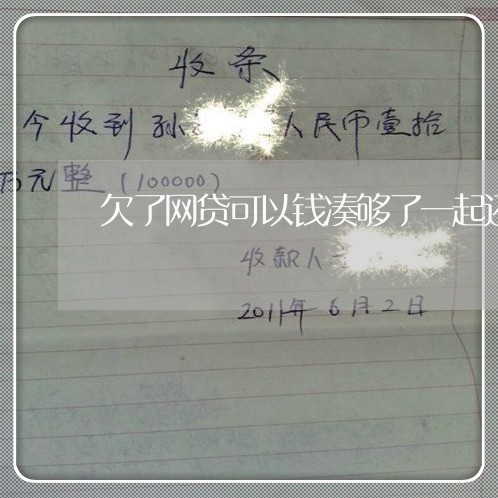 收条
今收到孙 人民币壹拾
万元整(100000)
欠了网贷可以钱凑够了一起还
收款人
2011年6月2日